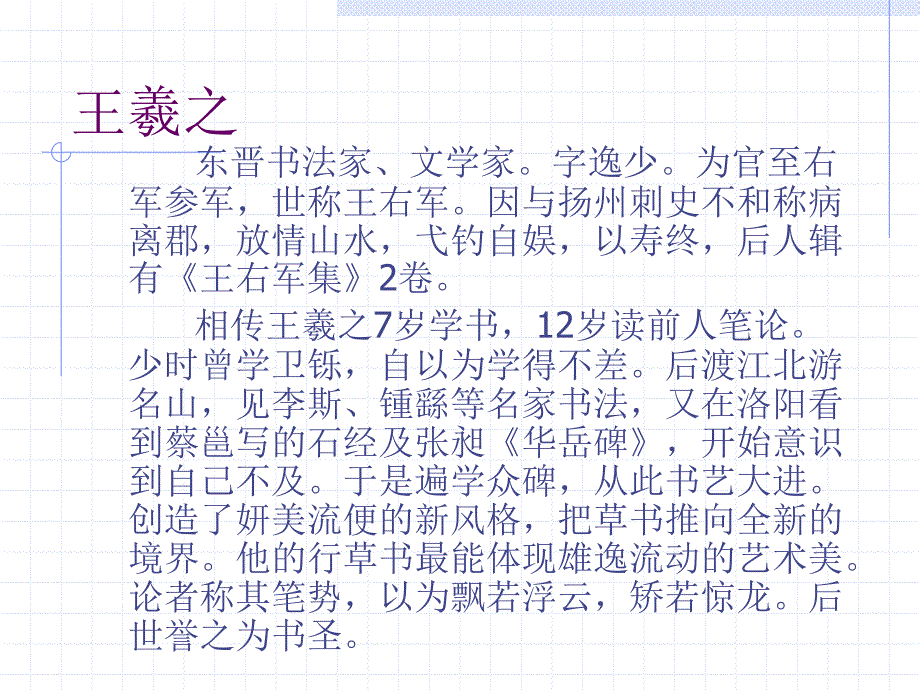 王羲之
东晋书法家、文学家。字逸少。为官至右
军参军，世称王右军。因与扬州刺史不和称病
离郡，放情山水，弋钓自娱，以寿终，后人辑
有《王右军集》2卷。
相传王羲之7岁学书，12岁读前人笔论。
少时曾学卫铄，自以为学得不差。后渡江北游
名山，见李斯、锺繇等名家书法，又在洛阳看
到蔡邕写的石经及张昶《华岳碑》，开始意识
到自己不及。于是遍学众碑，从此书艺大进。
创造了妍美流便的新风格，把草书推向全新的
境界。他的行草书最能体现雄逸流动的艺术美。
论者称其笔势，以为飘若浮云，矫若惊龙。后
世誉之为书圣。